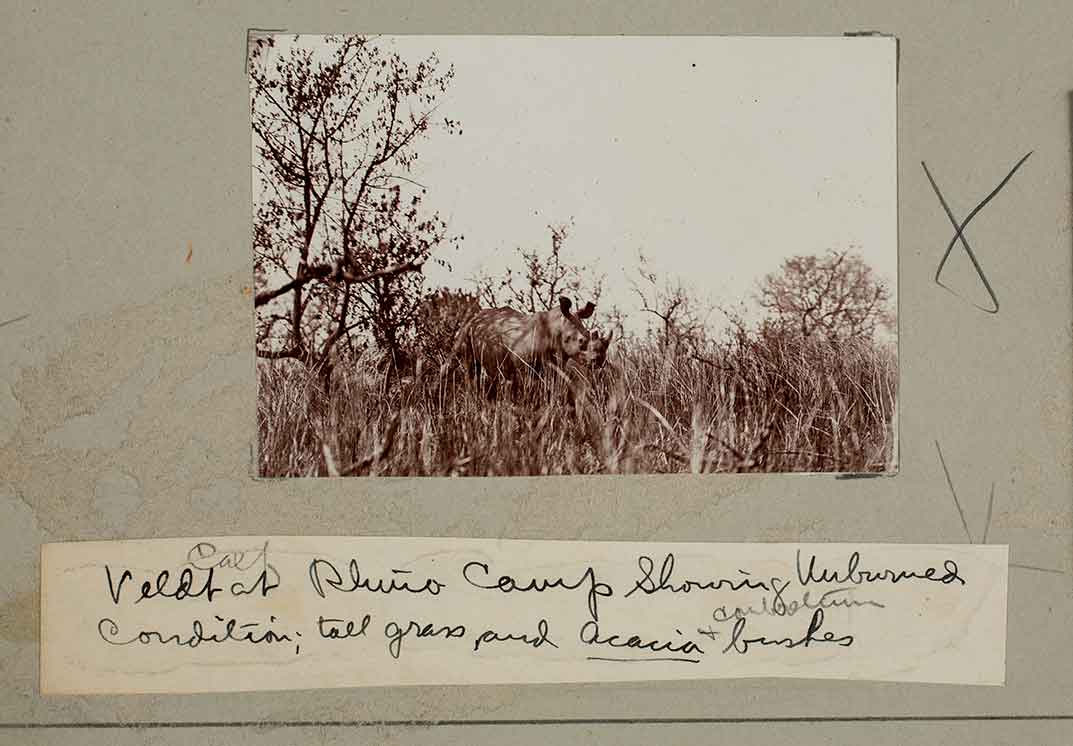 Calf
Veldt at Rhino Camp Showing Unburned
Condition; tall grass, and Acacia + bushes